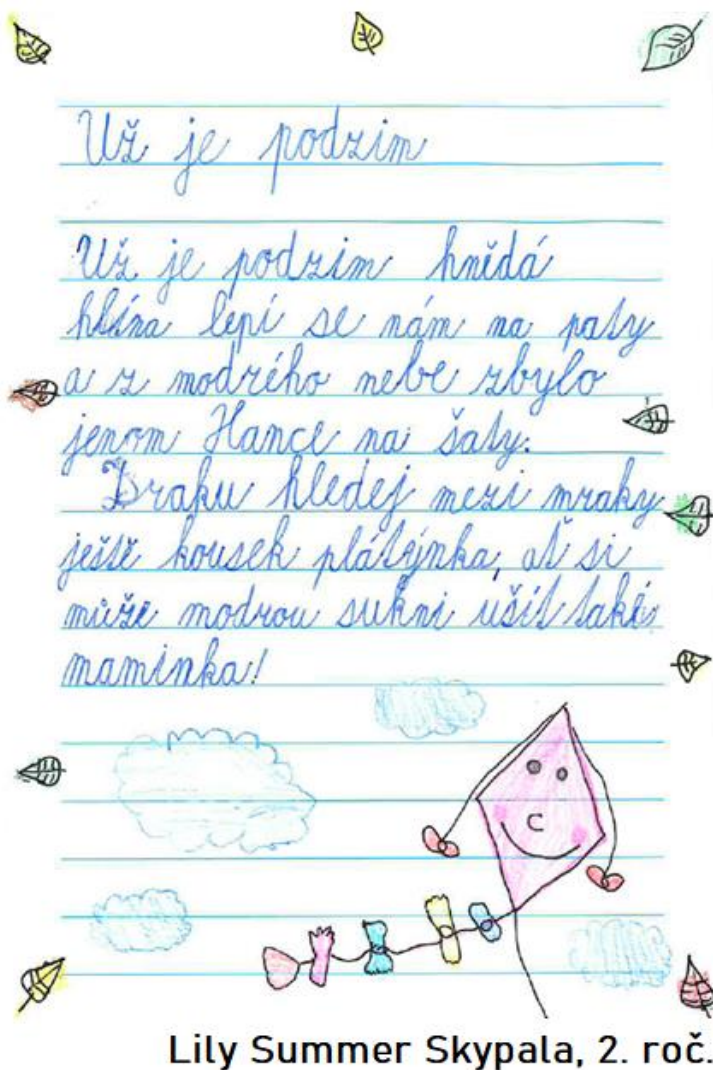 Už je podzim
Už je podzim hnědá
hlína lepí se nám na paty
a z modrého nebe zbylo
jenom Hance na šaty.
Draku hledej mezi mraky
ještě kousek plátýnka, ať si
může modrou sukni ušít také
maminka!
Lily Summer Skypala, 2. roč.